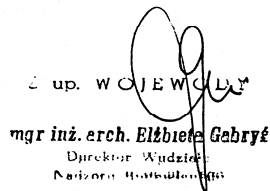 up. WOJEWODY
mgr inż. arch. Elżbieta Gabryś
Dyrektor Wydziału
Nadzoru